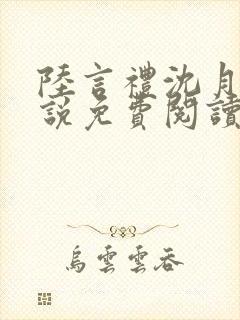 陸言禮沈月
說免費閱讀
烏雲雲吞